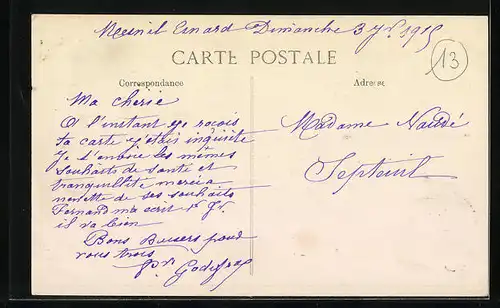 Mesnil Esnard Dimanche 3 Jr. 1915
13
CARTE POSTALE
Correspondance
Adresse
Ma cherie
A l'instant je reçois
ta carte j'etais inquiete
Je t'envoie les mêmes
souhaits de santé et
tranquillité merci a
nenette de ses souhaits
Fernand ma ecrit Jr
il va bien
Bons Baisers pour
vous trois
Godefroy
Madame Naudé
Septeuil